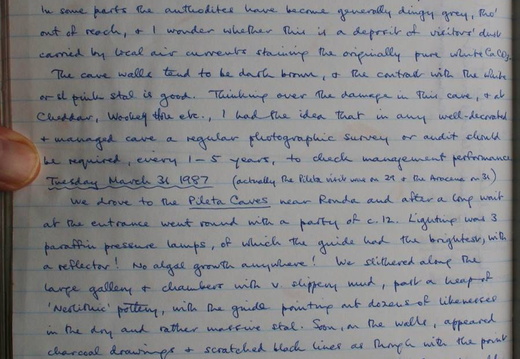 In some parts the anthodites have become generally dingy grey, tho'
out of reach, & I wonder whether this is a deposit of visitors' dust
carried by local air currents staining the originally pure white CaCO3.
The cave walls tend to be dark brown, & the contrast with the white
or sl pink stal is good. Thinking over the damage in this cave, & at
Cheddar, Wookey Hole etc., I had the idea that in any well-decorated
& managed cave a regular photographic survey or audit should
be required, every 1-5 years, to check management performance
Tuesday March 31 1987 (actually the Pileta visit was on 29 & the Aracena on 31)
We drove to the Pileta Caves near Ronda and after a long wait
at the entrance went round with a party of c.12. Lighting was 3
paraffin pressure lamps, of which the guide had the brightest, with
a reflector! No algal growth anywhere! We slithered along the
large gallery & chambers with v. slippery mud, past a heap of
'Neolithic' pottery, with the guide pointing out dozens of likenesses
in the dry and rather massive stal. Soon, on the walls, appeared
charcoal drawings & scratched black lines as though with the point